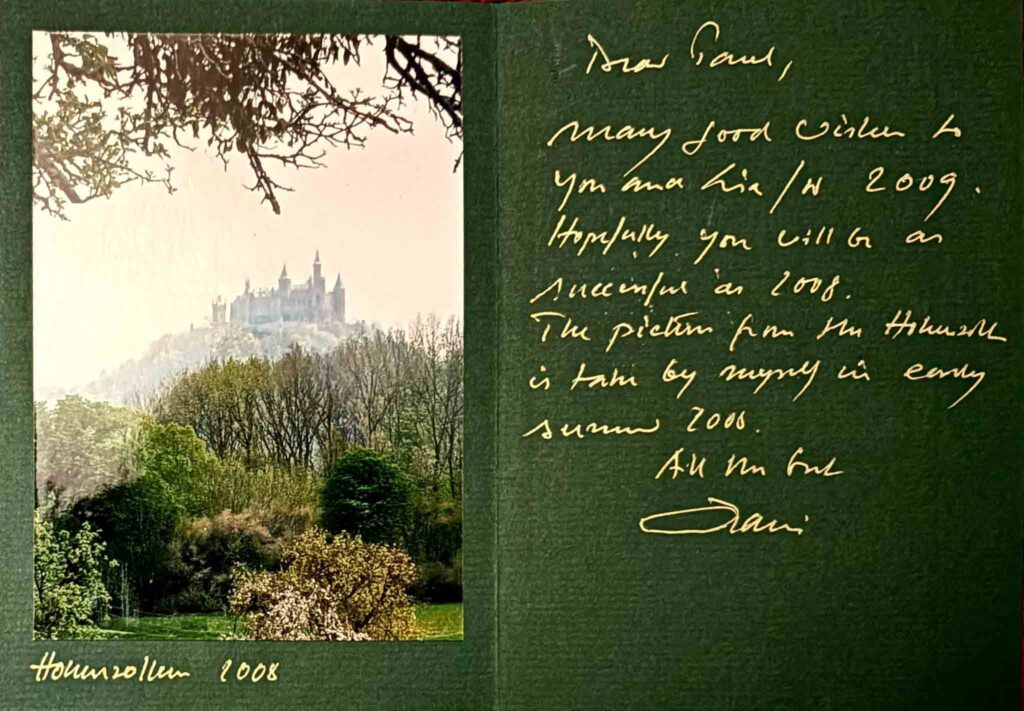 Dear Paul,
many good wishes to
you and Lia for 2009.
Hopefully you will be as
successful as 2008.
The picture from the Hohenzollern
is taken by myself in early
summer 2008.
All the best
Hohenzollern 2008